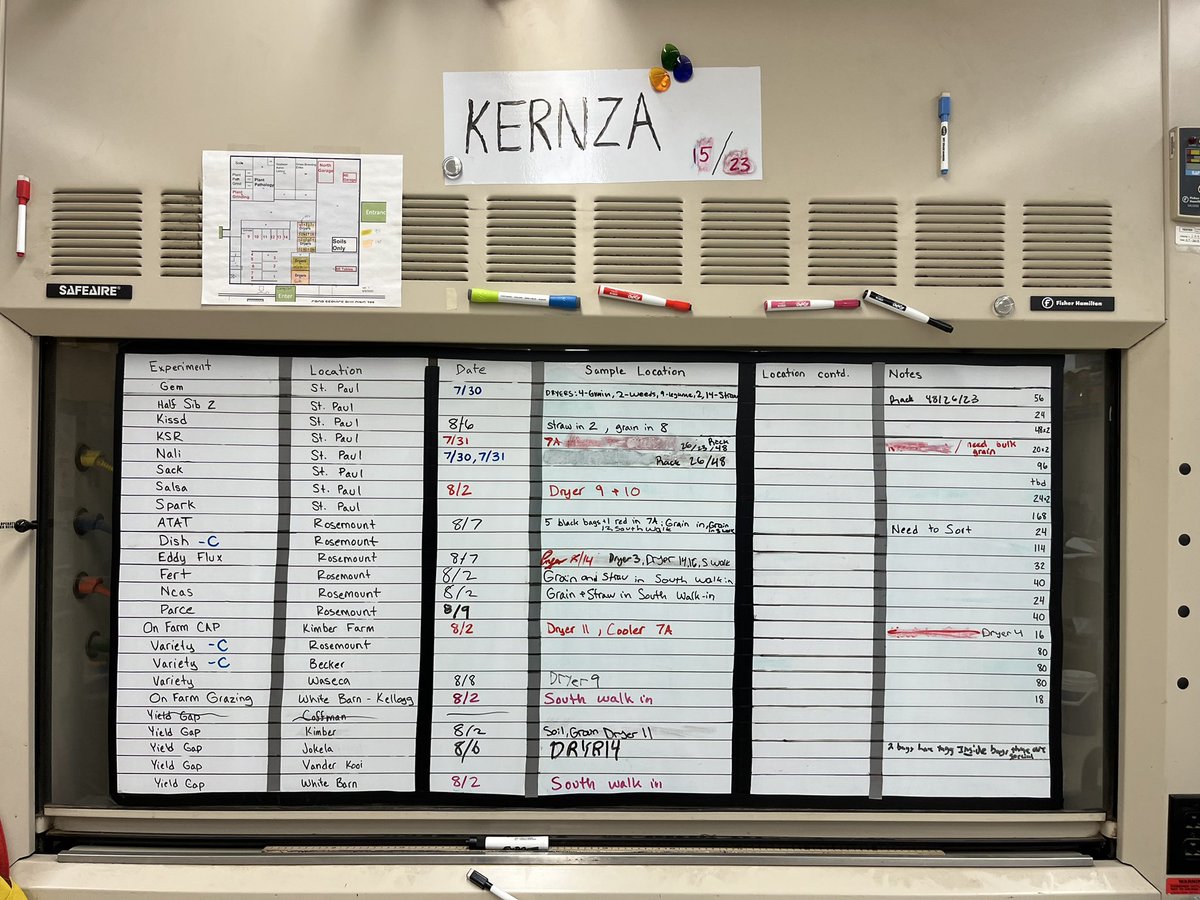 KERNZA
15/23
Plant Pathology
Plant Grinding
North Garage
Entrance
Soils Only
Enter
SAFEAIRE
Fisher Hamilton
Experiment Location Date Sample Location Location contd. Notes
Gem St. Paul 7/30 DRYERS: 4-Grain, 2-Weeds, 9-Legume, 2,14-Straw Rack 48/26/23 56
Half Sib 2 St. Paul 24
Kissd St. Paul 8/6 straw in 2, grain in 8 48x2
KSR St. Paul 7/31 7A 26/23/48 Rack / need bulk grain 20+2
Nali St. Paul 7/30, 7/31 Rack 26/48 96
Sack St. Paul tbd
Salsa St. Paul 8/2 Dryer 9 + 10 24+2
Spark St. Paul 168
ATAT Rosemount 8/7 5 black bags+1 red in 7A; Grain in, Grain 12, South Walk in S walk Need to Sort 24
Dish -C Rosemount 114
Eddy Flux Rosemount 8/7 Dryer 3, Dryer 14,16, S walk 32
Fert Rosemount 8/2 Grain and Straw in South walk-in 40
Ncas Rosemount 8/2 Grain + Straw in South Walk-in 24
Parce Rosemount 8/9 40
On Farm CAP Kimber Farm 8/2 Dryer 11, Cooler 7A Dryer 4 16
Variety -C Rosemount 80
Variety -C Becker 80
Variety Waseca 8/8 Dryer 9 80
On Farm Grazing White Barn - Kellogg 8/2 South walk in 18
Yield Gap Coffman
Yield Gap Kimber 8/2 Soil, Grain Dryer 11
Yield Gap Jokela 8/6 DRYR14 2 bags have tags Inside bags
Yield Gap Vander Kooi
Yield Gap White Barn 8/2 South walk in